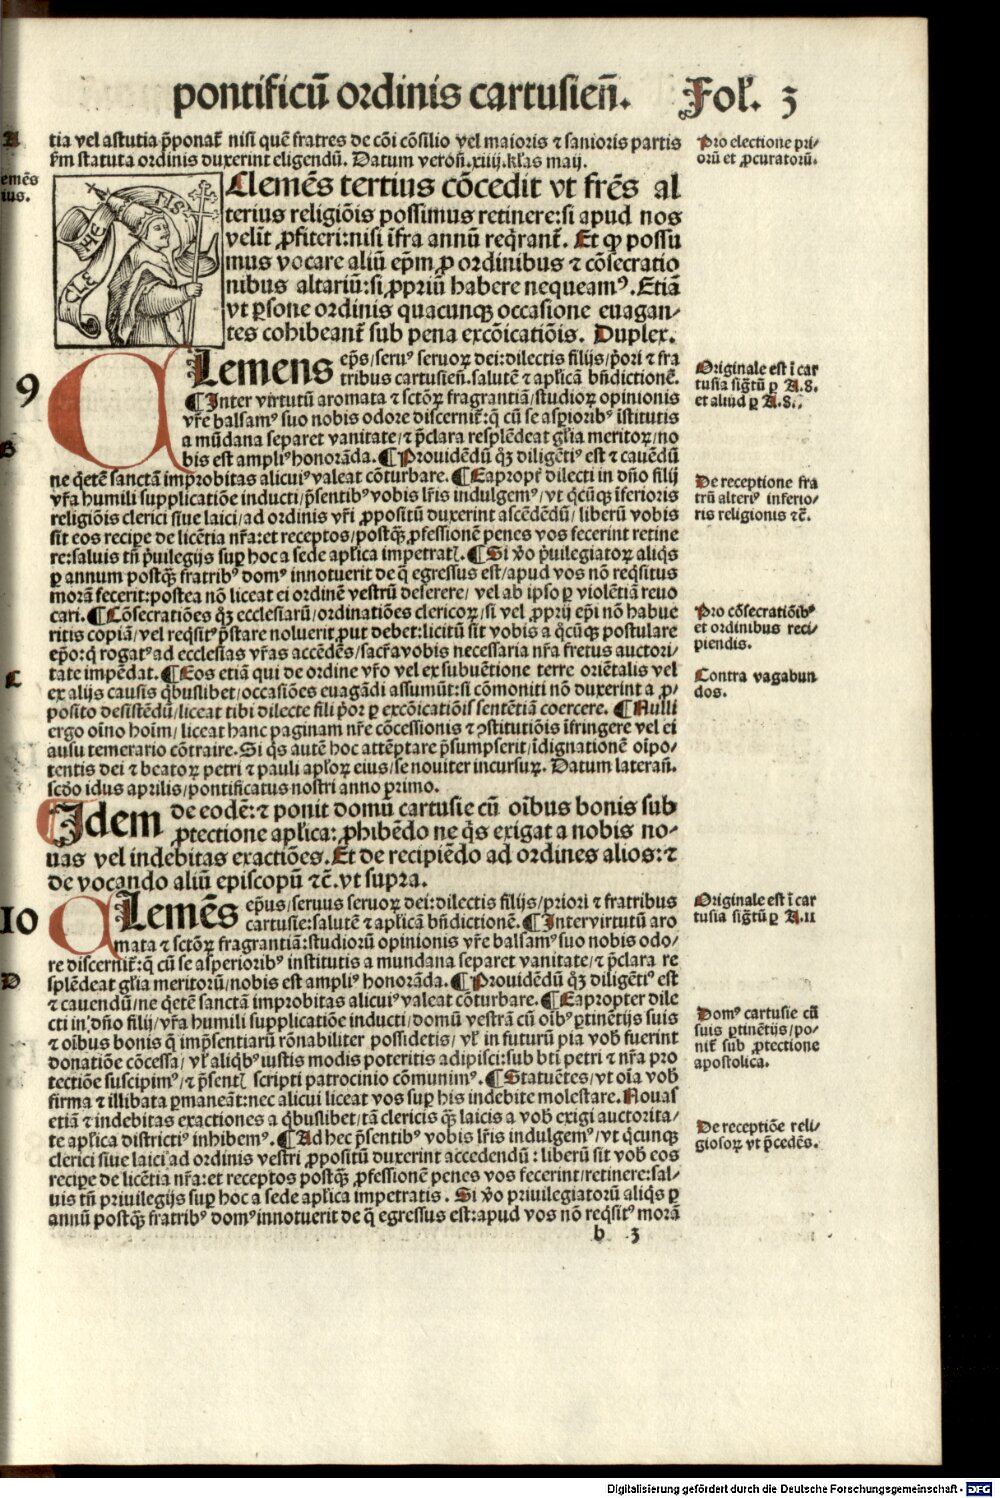 pontificū ordinis cartusieñ. Fol. 3
A
tia vel astutia p̄ponat̄ nisi quē fratres de cōi cōsilio vel maioris ⁊ sanioris partis
s̄m statuta ordinis duxerint eligendū. Datum veroñ.xiiij.kl̄as maij.
Pro electione pri-
orū et ꝓcuratorū.
emēs
ius.
CLE ME NS
Clemēs tertius cōcedit vt fr̄es al
terius religiōis possimus retinere:si apud nos
velīt ꝓfiteri:nisi īfra annū req̄rant̄. Et ꝙ possu
mus vocare aliū ep̄m ꝓ ordinibus ⁊ cōsecratio
nibus altariū:si ꝓpriū habere nequeamꝰ. Etiā
vt ꝑsone ordinis quacunqꝫ occasione euagan-
tes cohibeant̄ sub pena excōicatiōis. Duplex.
9
CLemens ep̄s/seruꝰ seruoꝝ dei:dilectis filijs/p̄ori ⁊ fra
tribus cartusieñ.salutē ⁊ aplīcā bn̄dictionē.
¶Inter virtutū aromata ⁊ sctōꝝ fragrantiā/studioꝝ opinionis
vr̄e balsamꝰ suo nobis odore discernit̄:q̄ cū se asp̄ioribꝰ īstitutis
a mūdana separet vanitate/⁊ p̄clara resplēdeat gl̄ia meritoꝝ/no
bis est ampliꝰ honorāda.¶Prouidēdū q̄ꝫ diligētiꝰ est ⁊ cauēdū
Originale est ī car
tusia sig̃tū ꝑ A.8.
et aliud ꝑ A.8..
B
ne q̄etē sanctā improbitas alicuiꝰ valeat cōturbare.¶Eapropt̄ dilecti in dn̄o filij
vr̄a humili supplicatiōe inducti/p̄sentibꝰ vobis lr̄is indulgemꝰ/vt q̄cūqꝫ īferioris
religiōis clerici siue laici/ad ordinis vr̄i ꝓpositū duxerint ascēdēdū/liberū vobis
sit eos recipe de licētia nr̄a:et receptos/postq̄ꝫ ꝓfessionē penes vos fecerint retine
re:saluis tn̄ p̄uilegijs suꝑ hoc a sede apl̄ica impetrat̄.¶Si v̄o p̄uilegiatoꝝ aliq̄s
ꝑ annum postq̄ꝫ fratribꝰ domꝰ innotuerit de q̄ egressus est/apud vos nō req̄situs
morā fecerit:postea nō liceat ei ordinē vestrū deserere/vel ab ipso ꝑ violētiā reuo
cari.¶Cōsecratiōes q̄ꝫ ecclesiarū/ordinatiōes clericoꝝ/si vel ꝓprij ep̄i nō habue
ritis copiā/vel req̄sitꝰ p̄stare noluerit ꝓut debet:licitū sit vobis a q̄cūqꝫ postulare
ep̄o:q̄ rogatꝰ ad ecclesias vr̄as accedēs/sacr̄a vobis necessaria nr̄a fretus auctori-
De receptione fra
trū alteriꝰ inferio-
ris religionis ⁊c̄.
Pro cōsecratiōibꝰ
et ordinibus reci-
piendis.
C
tate impēdat.¶Eos etiā qui de ordine vr̄o vel ex subuētione terre oriētalis vel
ex alijs causis q̄buslibet/occasiōes euagādi assumūt:si cōmoniti nō duxerint a ꝓ-
posito desistēdū/liceat tibi dilecte fili p̄or ꝑ excōicatiōis sentētiā coercere. ¶Nulli
ergo oīno hoīm/liceat hanc paginam nr̄e cōcessionis ⁊ ꝯstitutiōis īfringere vel ei
ausu temerario cōtraire.Si q̄s autē hoc attēptare p̄sumpserit/īdignationē oīpo-
tentis dei ⁊ beatoꝝ petri ⁊ pauli apl̄oꝝ eius/se nouiter incursuꝝ. Datum laterañ.
scd̄o idus aprilis/pontificatus nostri anno primo.
Contra vagabun
dos.
Idem de eodē:⁊ ponit domū cartusie cū oībus bonis sub
ꝓtectione apl̄ica:ꝓhibēdo ne q̄s exigat a nobis no-
uas vel indebitas exactiōes.Et de recipiēdo ad ordines alios:⁊
de vocando aliū episcopū ⁊c̄.vt supra.
10
CLemēs ep̄us/seruus seruoꝝ dei:dilectis filijs/priori ⁊ fratribus
cartusie:salutē ⁊ apl̄icā bn̄dictionē.¶Intervirtutū aro
mata ⁊ sctōꝝ fragrantiā:studiorū opinionis vr̄e balsamꝰ suo nobis odo-
re discernit̄:q̄ cū se asperioribꝰ institutis a mundana separet vanitate/⁊ p̄clara re
Originale est ī car
tusia sig̃tū ꝑ A.11
D
splēdeat gl̄ia meritorū/nobis est ampliꝰ honorāda.¶Prouidēdū q̄ꝫ diligētiꝰ est
⁊ cauendū/ne q̄etē sanctā improbitas alicuiꝰ valeat cōturbare.¶Eapropter dile
cti in dn̄o filij/vr̄a humili supplicatiōe inducti/domū vestrā cū oībꝰ ꝑtinētijs suis
⁊ oībus bonis q̄ imp̄sentiarū rōnabiliter possidetis/vl̄ in futurū pia vob̄ fuerint
donatiōe cōcessa/vl̄ aliq̄bꝰ iustis modis poteritis adipisci:sub bt̄i petri ⁊ nr̄a pro
tectiōe suscipimꝰ/⁊ p̄sent̄ scripti patrocinio cōmunimꝰ.¶Statuētes/vt oīa vob̄
firma ⁊ illibata ꝑmaneāt:nec alicui liceat vos suꝑ his indebite molestare.Nouas
etiā ⁊ indebitas exactiones a q̄buslibet/tā clericis q̄ꝫ laicis a vob̄ exigi auctorita-
te apl̄ica districtiꝰ inhibemꝰ.¶Ad hec p̄sentibꝰ vobis lr̄is indulgemꝰ/vt q̄cunqꝫ
clerici siue laici ad ordinis vestri ꝓpositū duxerint accedendū:liberū sit vob̄ eos
recipe de licētia nr̄a:et receptos postq̄ꝫ ꝓfessionē penes vos fecerint/retinere:sal-
uis tn̄ priuilegijs suꝑ hoc a sede apl̄ica impetratis. Si v̄o priuilegiatorū aliq̄s ꝑ
annū postq̄ꝫ fratribꝰ domꝰ innotuerit de q̄ egressus est:apud vos nō req̄sitꝰ morā
Domꝰ cartusie cū
suis ꝑtinētijs/po-
nit̄ sub ꝓtectione
apostolica.
De receptiōe reli-
giosoꝝ vt p̄cedēs.
b 3
Digitalisierung gefördert durch die Deutsche Forschungsgemeinschaft - DFG